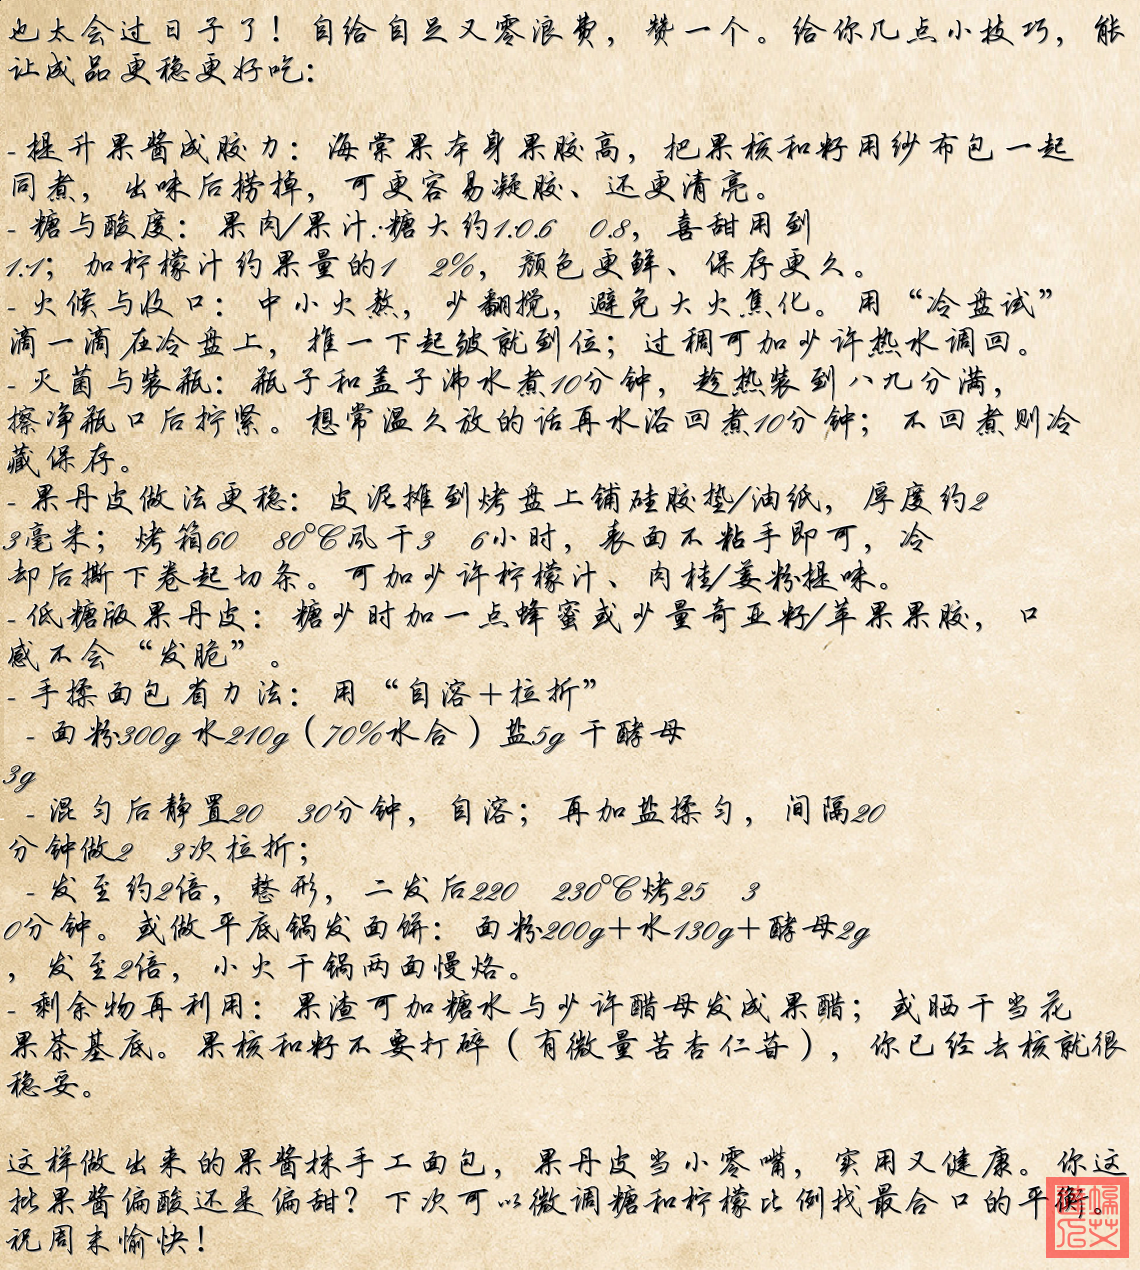 也太会过日子了！自给自足又零浪费，赞一个。给你几点小技巧，能
让成品更稳更好吃：
- 提升果酱成胶力：海棠果本身果胶高，把果核和籽用纱布包一起
同煮，出味后捞掉，可更容易凝胶、还更清亮。
- 糖与酸度：果肉/果汁:糖大约1:0.6 0.8，喜甜用到
1:1；加柠檬汁约果量的1 2%，颜色更鲜、保存更久。
- 火候与收口：中小火熬，少翻搅，避免大火焦化。用“冷盘试”
滴一滴在冷盘上，推一下起皱就到位；过稠可加少许热水调回。
- 灭菌与装瓶：瓶子和盖子沸水煮10分钟，趁热装到八九分满，
擦净瓶口后拧紧。想常温久放的话再水浴回煮10分钟；不回煮则冷
藏保存。
- 果丹皮做法更稳：皮泥摊到烤盘上铺硅胶垫/油纸，厚度约2
3毫米；烤箱60 80℃风干3 6小时，表面不粘手即可，冷
却后撕下卷起切条。可加少许柠檬汁、肉桂/姜粉提味。
- 低糖版果丹皮：糖少时加一点蜂蜜或少量奇亚籽/苹果果胶，口
感不会“发脆”。
- 手揉面包省力法：用“自溶＋拉折”
- 面粉300g 水210g（70%水合）盐5g 干酵母
3g
- 混匀后静置20 30分钟，自溶；再加盐揉匀，间隔20
分钟做2 3次拉折；
- 发至约2倍，整形，二发后220 230℃烤25 3
0分钟。或做平底锅发面饼：面粉200g＋水130g＋酵母2g
，发至2倍，小火干锅两面慢烙。
- 剩余物再利用：果渣可加糖水与少许醋母发成果醋；或晒干当花
果茶基底。果核和籽不要打碎（有微量苦杏仁苷），你已经去核就很
稳妥。
这样做出来的果酱抹手工面包，果丹皮当小零嘴，实用又健康。你这
批果酱偏酸还是偏甜？下次可以微调糖和柠檬比例找最合口的平衡。
祝周末愉快！